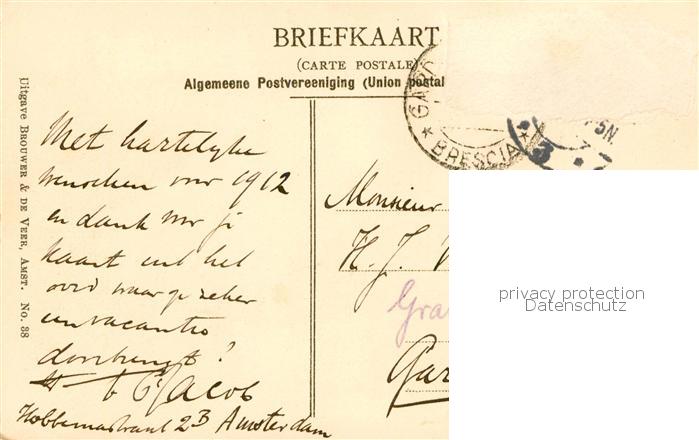 BRIEFKAART
(CARTE POSTALE)
Algemeene Postvereeniging (Union postal
Uitgave BROUWER & DE VEER, AMST. No. 38
Met hartelyke
wenschen voor 1912
en dank voor je
kaart uit het
oord waar je zeker
een vacantie
doorbrengt?
Jacob
Hobbemastraat 23 Amsterdam
GARD
* BRESCIA *
5N.
Monsieur
H. J.
Gra
Gar
privacy protection
Datenschutz